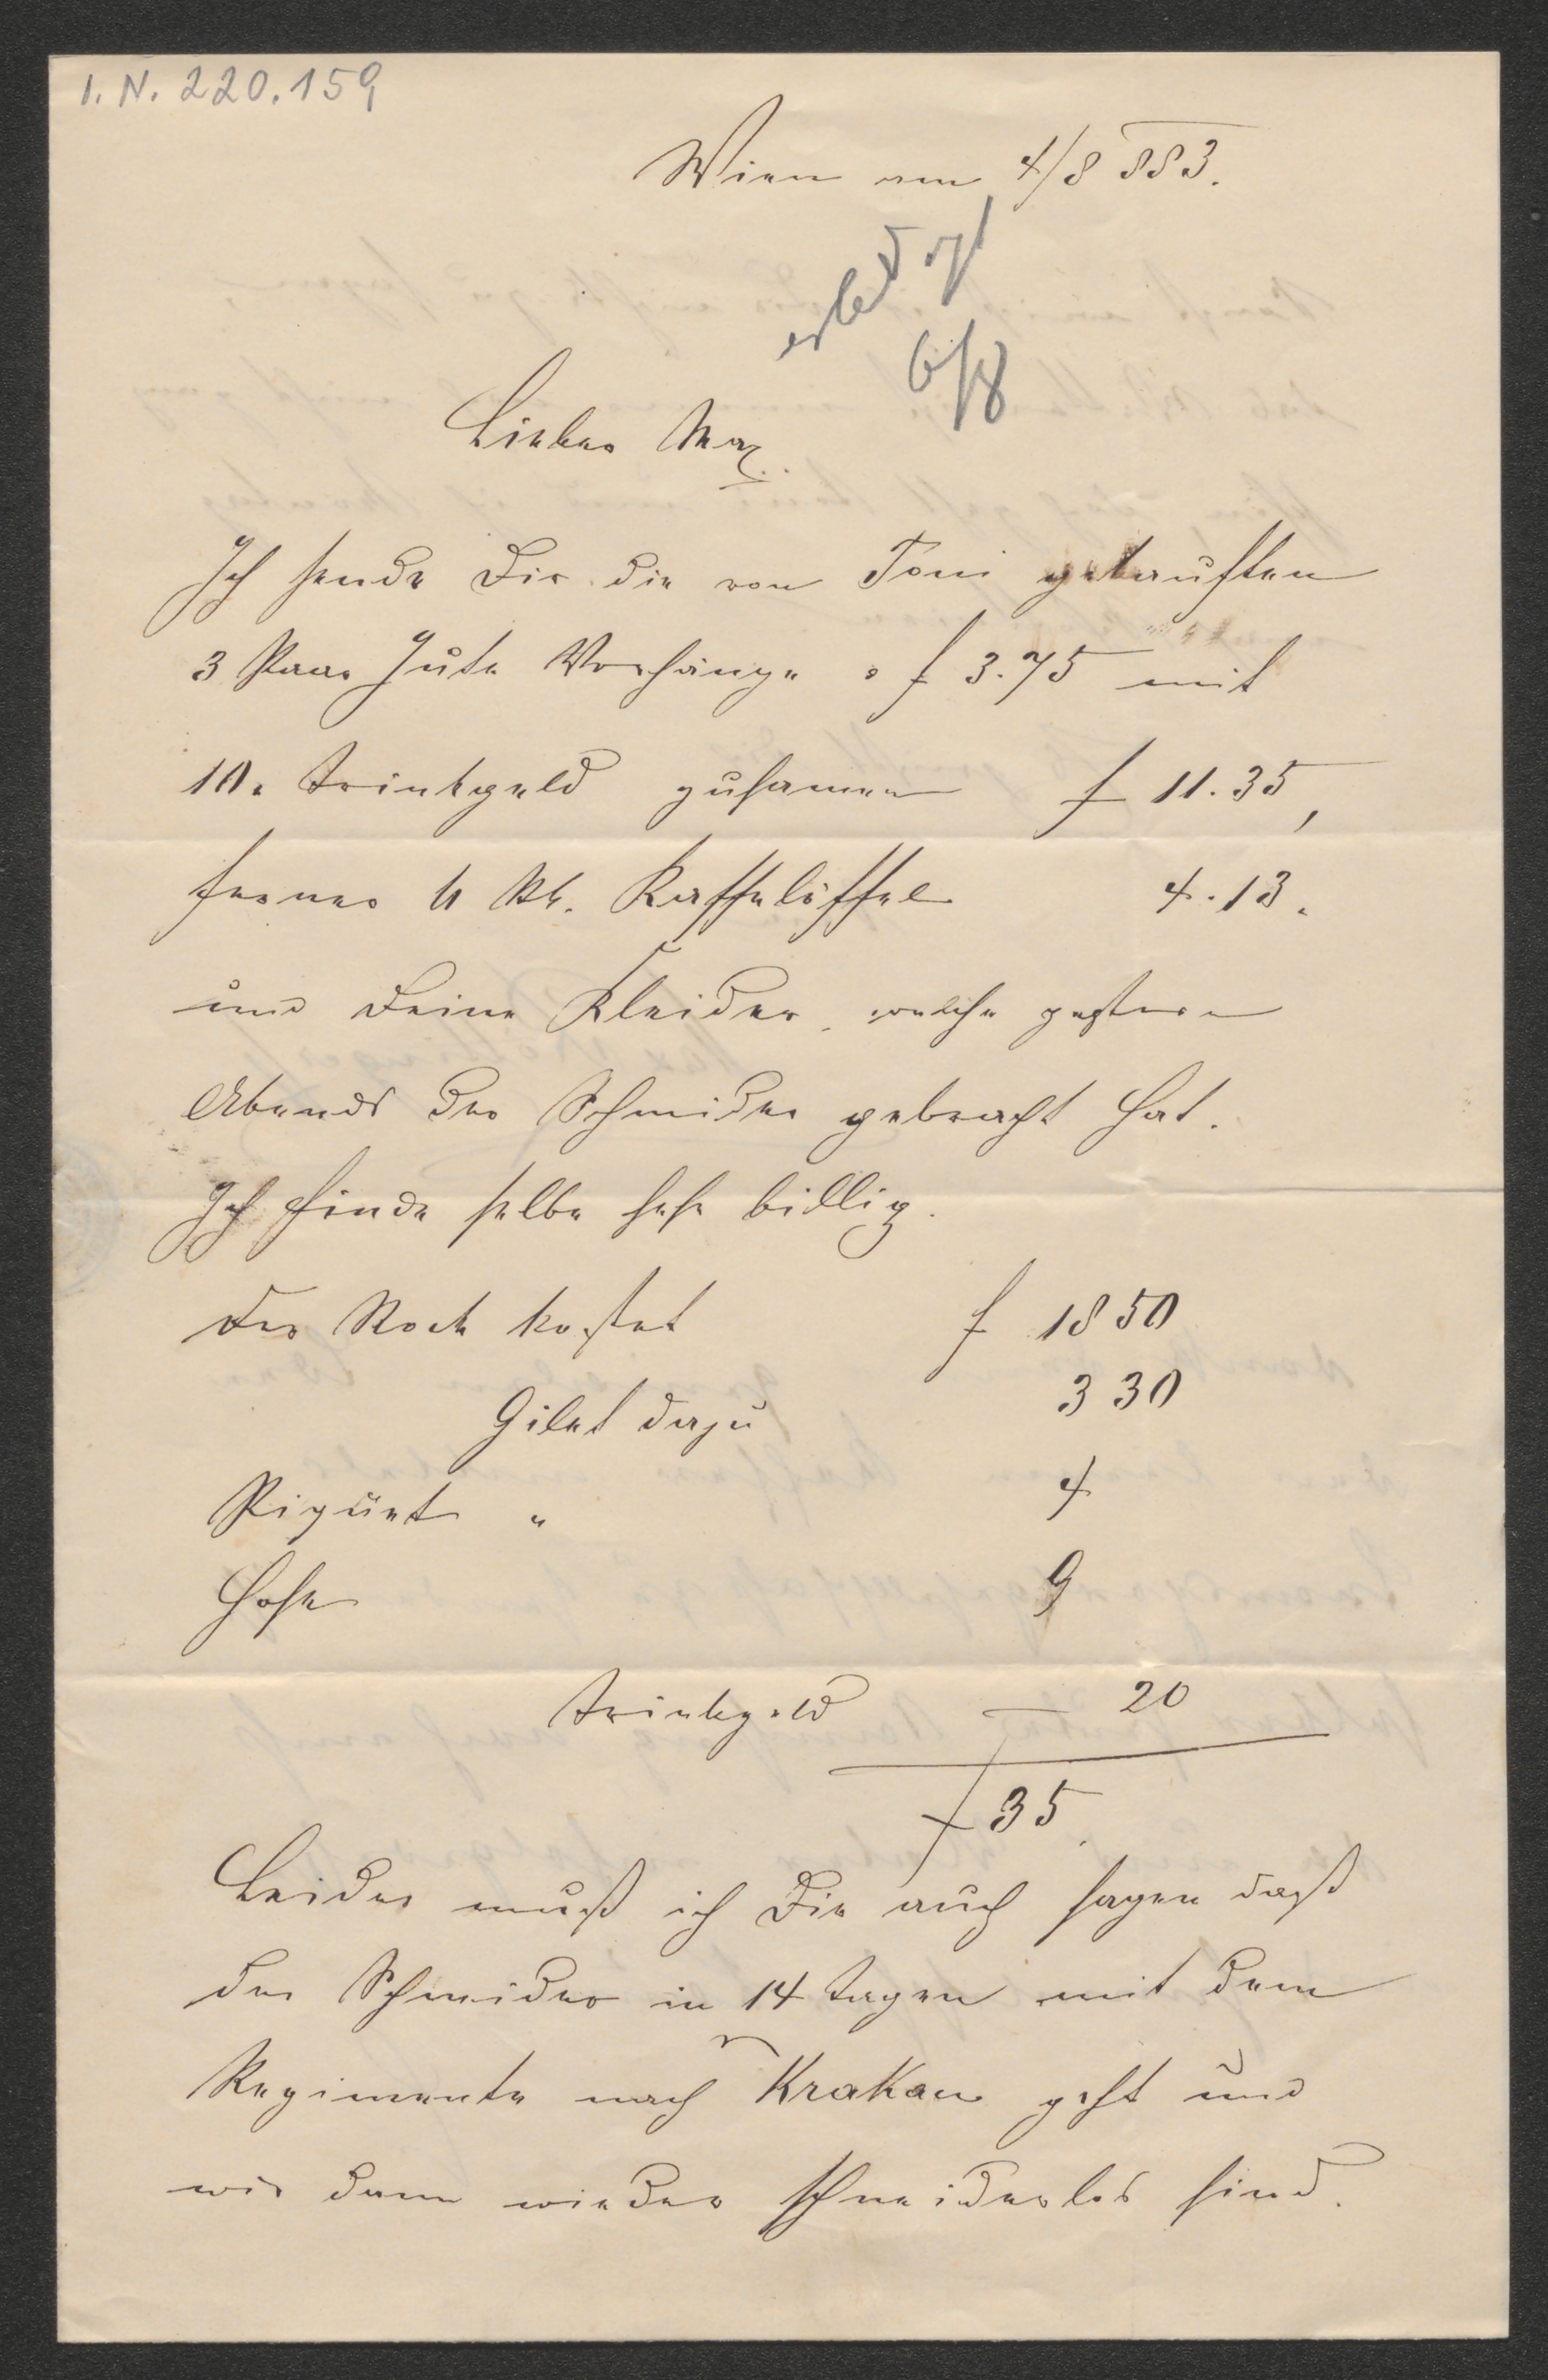 I. N. 220.159
Wien am 4/8 883.
erledigt
6/8
Lieber Max.
Ich sende Dir die von Toni gekauften
3 Paar Jute Vorhänge a f 3.75 mit
10. Trinkgeld zusamen f 11.35,
ferner 6 Kaffelöffel 4.13.
und Deine Kleider, welche gestern
Abends der Schneider gebracht hat.
Ich finde selbe sehr billig.
Der Rock kostet f 18 50
Gilet dazu 3 30
Piquet " 4
Hose 9
Trinkgeld — 20
f 35
Leider muß ich Dir auch sagen daß
der Schneider in 14 Tagen mit dem
Regimente nach Krakau geht und
wir dann wieder schneiderlos sind.